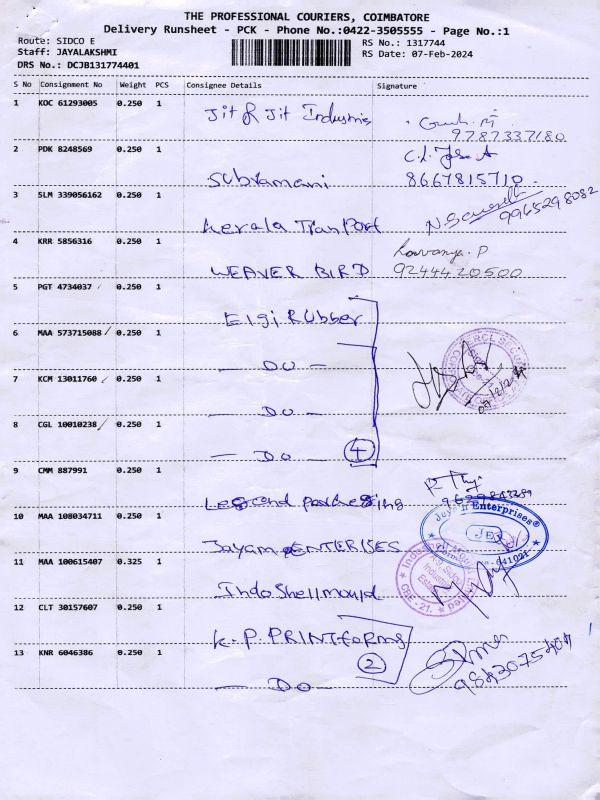 THE PROFESSIONAL COURIERS, COIMBATORE
Delivery Runsheet - PCK - Phone No.:0422-3505555 - Page No.:1
Route: SIDCO E
Staff: JAYALAKSHMI
DRS No.: DCJB131774401
RS No.: 1317744
RS Date: 07-Feb-2024
S No Consignment No Weight PCS Consignee Details Signature
1 KOC 61293005 0.250 1 Jit & Jit Industries
9787337180
2 PDK 8248569 0.250 1 Subramani
8667815710
3 SLM 339056162 0.250 1 Kerala TranPort
9965298082
4 KRR 5856316 0.250 1 WEAVER BIRD Lavanya. P
9244420500
5 PGT 4734037 0.250 1 Elgi Rubber
6 MAA 573715088 0.250 1 — DO —
7 KCM 13011760 0.250 1 — DO —
8 CGL 10010238 0.250 1 — DO — 4
9 CMM 887991 0.250 1
10 MAA 108034711 0.250 1 Jayam ENTERISES
Jayam Enterprises®
641021
11 MAA 100615407 0.325 1 Indo Shell mould
CBE - 21.
12 CLT 30157607 0.250 1 K. P. PRINTforms
13 KNR 6046386 0.250 1 — DO — 2